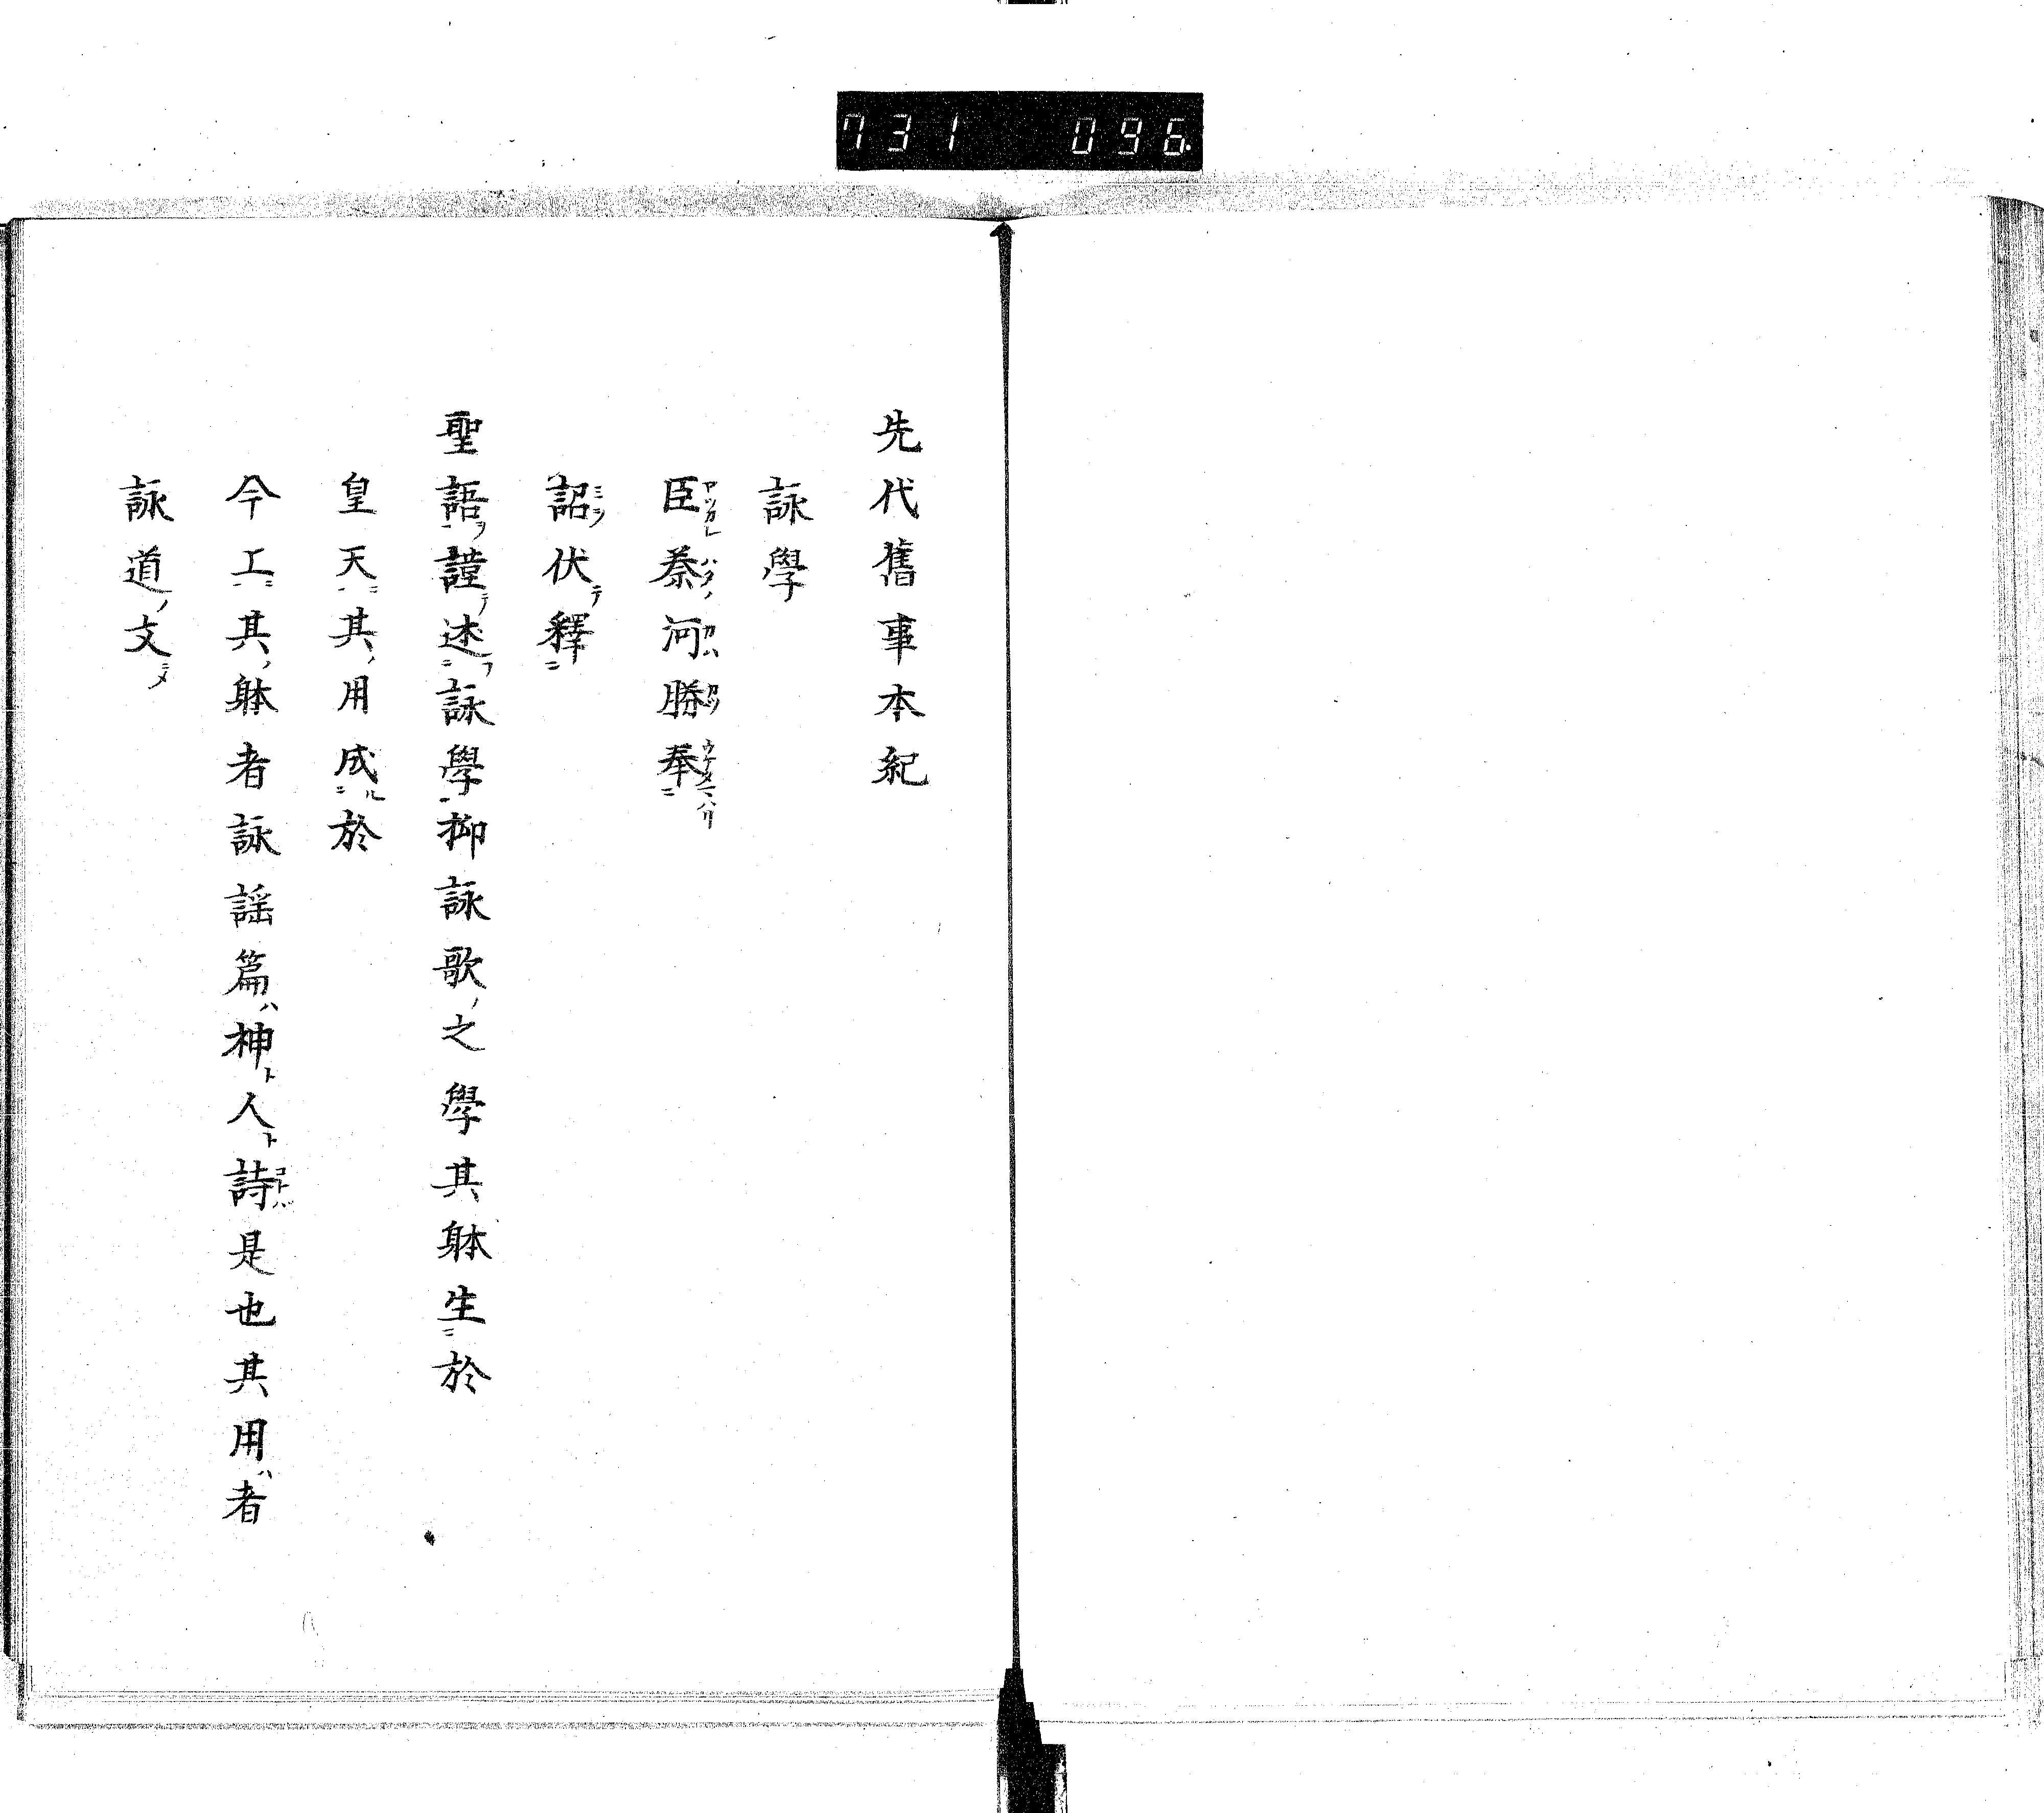 731 096
先代舊事本紀
詠學
臣秦河勝奉
詔伏釋
聖語謹述詠學抑詠歌之學其躰生於
皇天其用成於
今工其躰者詠謡篇神人詩是也其用者
詠道文